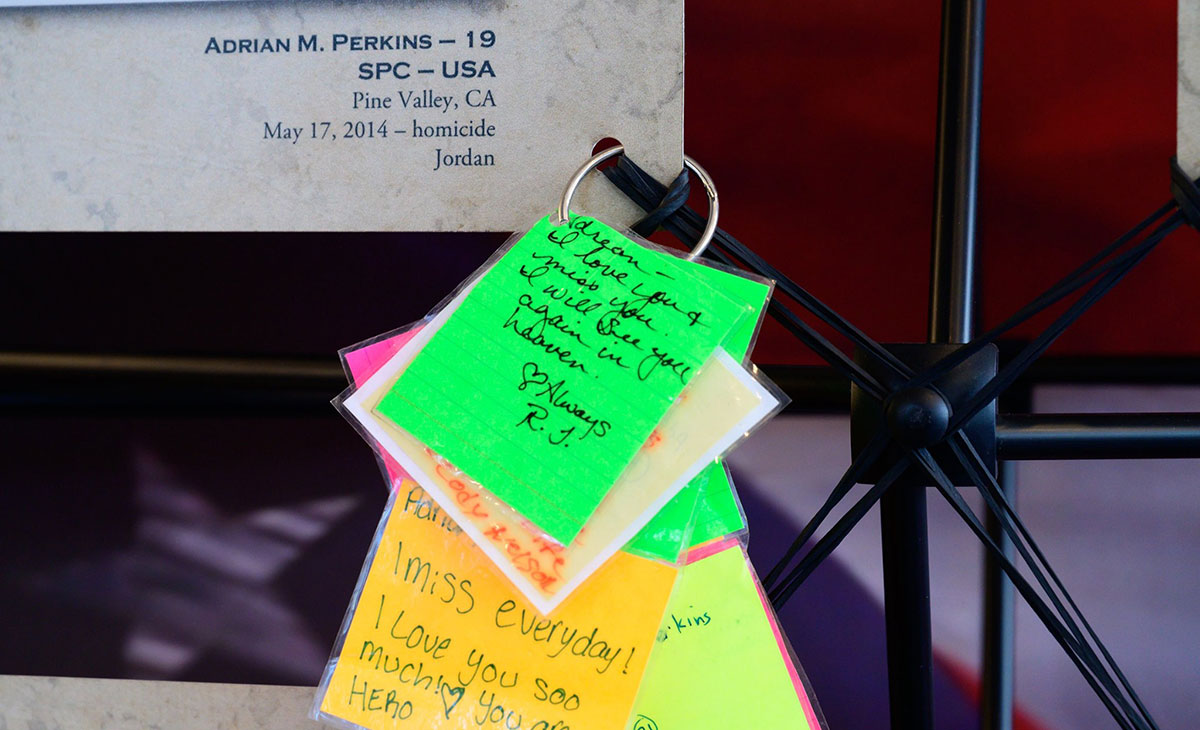 ADRIAN M. PERKINS – 19
SPC – USA
Pine Valley, CA
May 17, 2014 – homicide
Jordan
I love you &
miss you.
I will see you
again in
heaven.
♡ Always
R.J.
I miss everyday!
I Love you soo
much! ♡ you are
HERO
kins